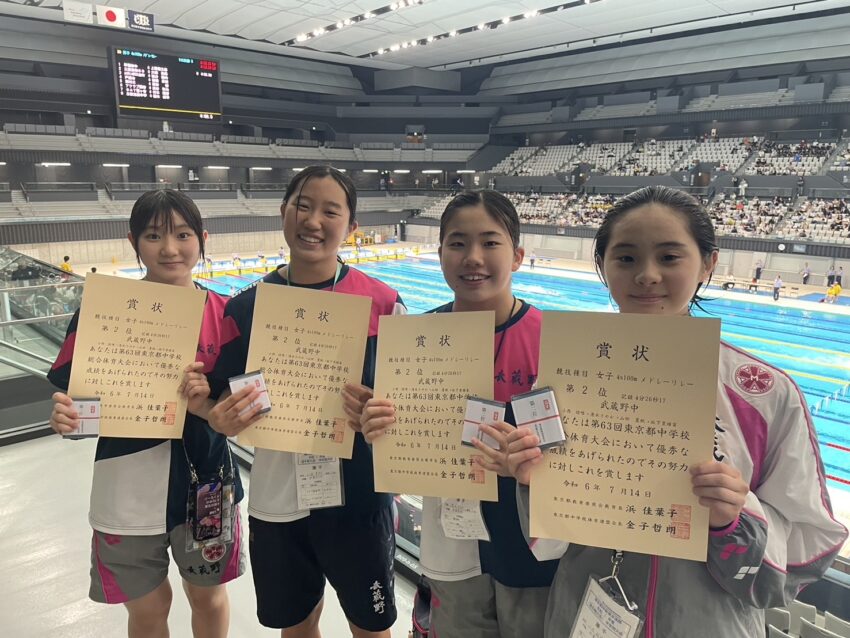 賞状
競技種目 女子 4x100m メドレーリレー
第2位
武蔵野中
あなたは第63回東京都中学校
総合体育大会において優秀な
成績をあげられたのでその努力
に対しこれを賞します
令和 6年 7月14日
浜 佳葉子
金子哲朗
賞状
競技種目 女子 4x100m メドレーリレー
第2位
武蔵野中
あなたは第63回東京都中学校
総合体育大会において優秀な
成績をあげられたのでその努力
に対しこれを賞します
6年 7月14日
浜 佳葉子
金子哲朗
賞状
競技種目 女子 4x100m メドレーリレー
第2位
武蔵野中
あなたは第63回東京都中学校
総合体育大会において優秀な
成績をあげられたのでその努力
に対しこれを賞します
令和 6年 7月14日
浜 佳葉子
金子哲朗
賞状
競技種目 女子 4x100m メドレーリレー
第2位
武蔵野中
あなたは第63回東京都中学校
総合体育大会において優秀な
成績をあげられたのでその努力
に対しこれを賞します
令和 6年 7月14
東京都教育委員会教育長 浜 佳葉子
東京都中学校体育連盟会長 金子哲朗
武蔵野
武蔵野
武蔵野